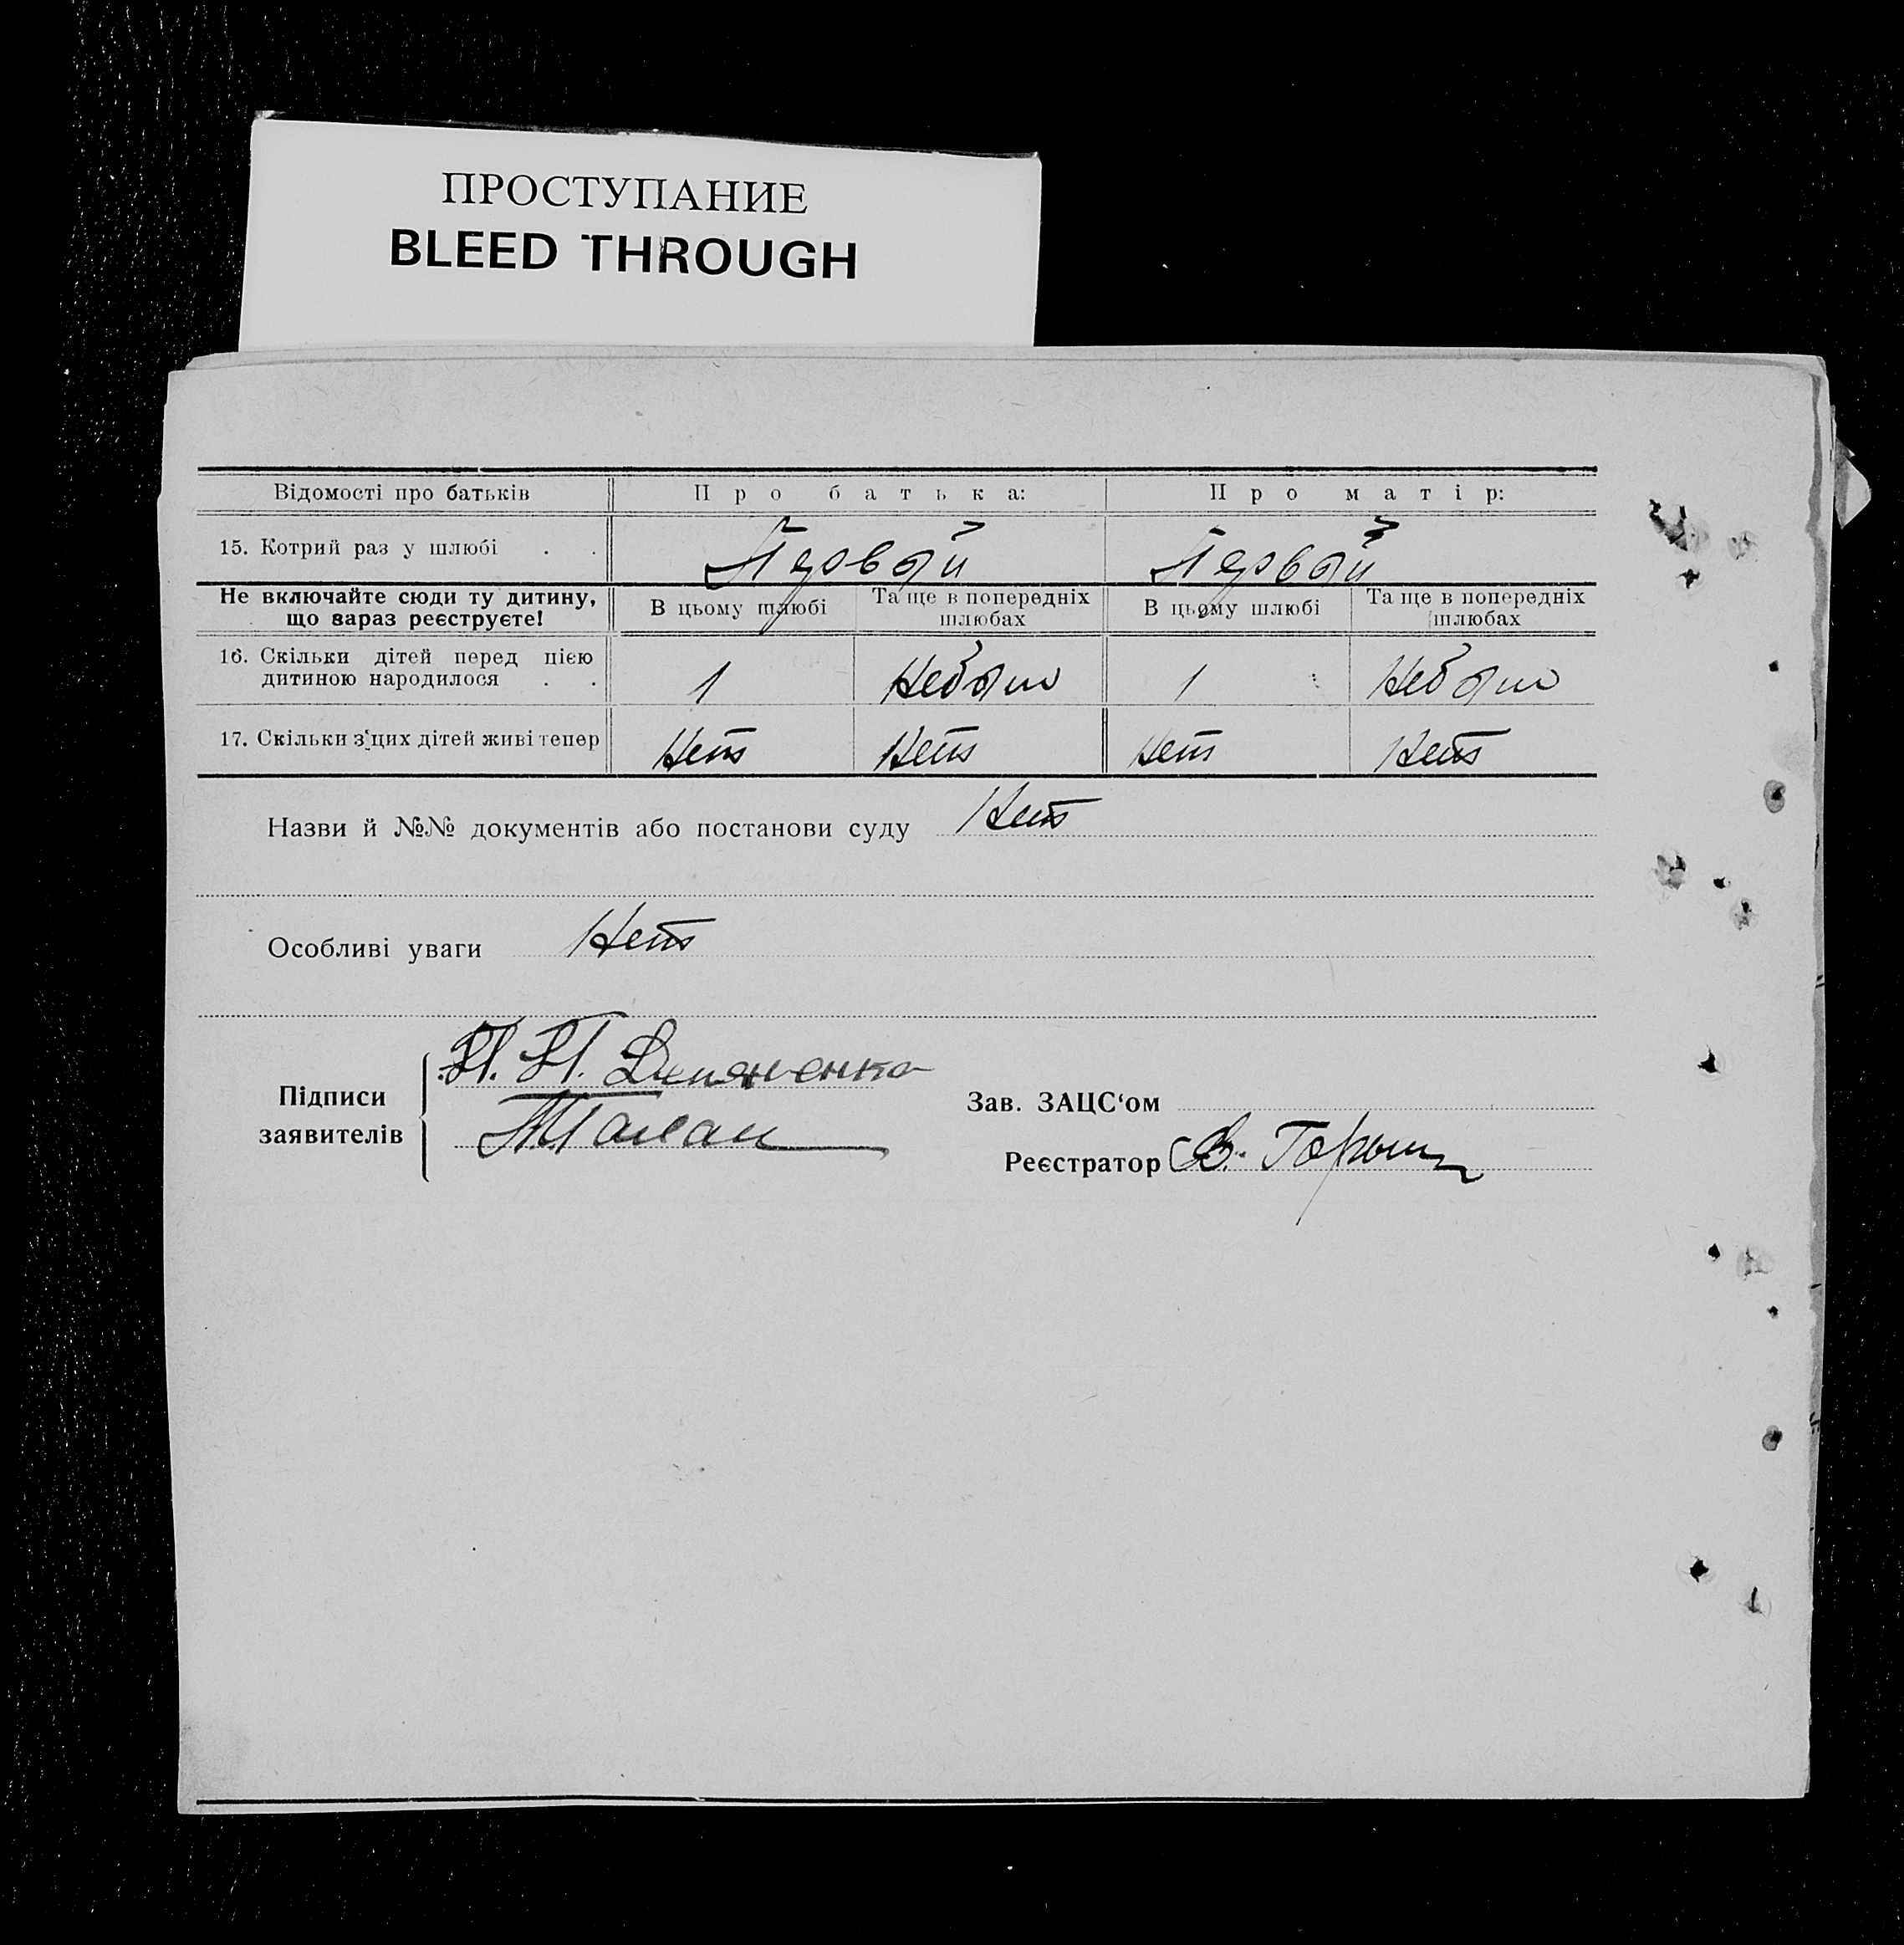 ПРОСТУПАНИЕ
BLEED THROUGH
Відомості про батьків Про батька: Про матір:
15. Котрий раз у шлюбі . . Первый Первый
Не включайте сюди ту дитину, що зараз реєструєте! В цьому шлюбі Та ще в попередніх шлюбах В цьому шлюбі Та ще в попередніх шлюбах
16. Скільки дітей перед цією дитиною народилося . . 1 Небыл 1 Небыл
17. Скільки з'цих дітей живі тепер Нет Нет Нет Нет
Назви й №№ документів або постанови суду Нет
Особливі уваги Нет
Підписи
заявителів
Зав. ЗАЦС'ом
Реєстратор В.